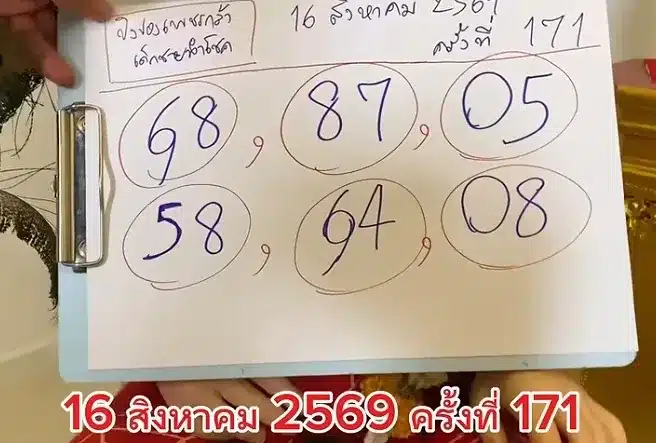 ปิงปองเพชรกล้า
เด็กชายนำโชค
16 สิงหาคม 2569
ครั้งที่ 171
68, 87, 05
58, 64, 08
16 สิงหาคม 2569 ครั้งที่ 171